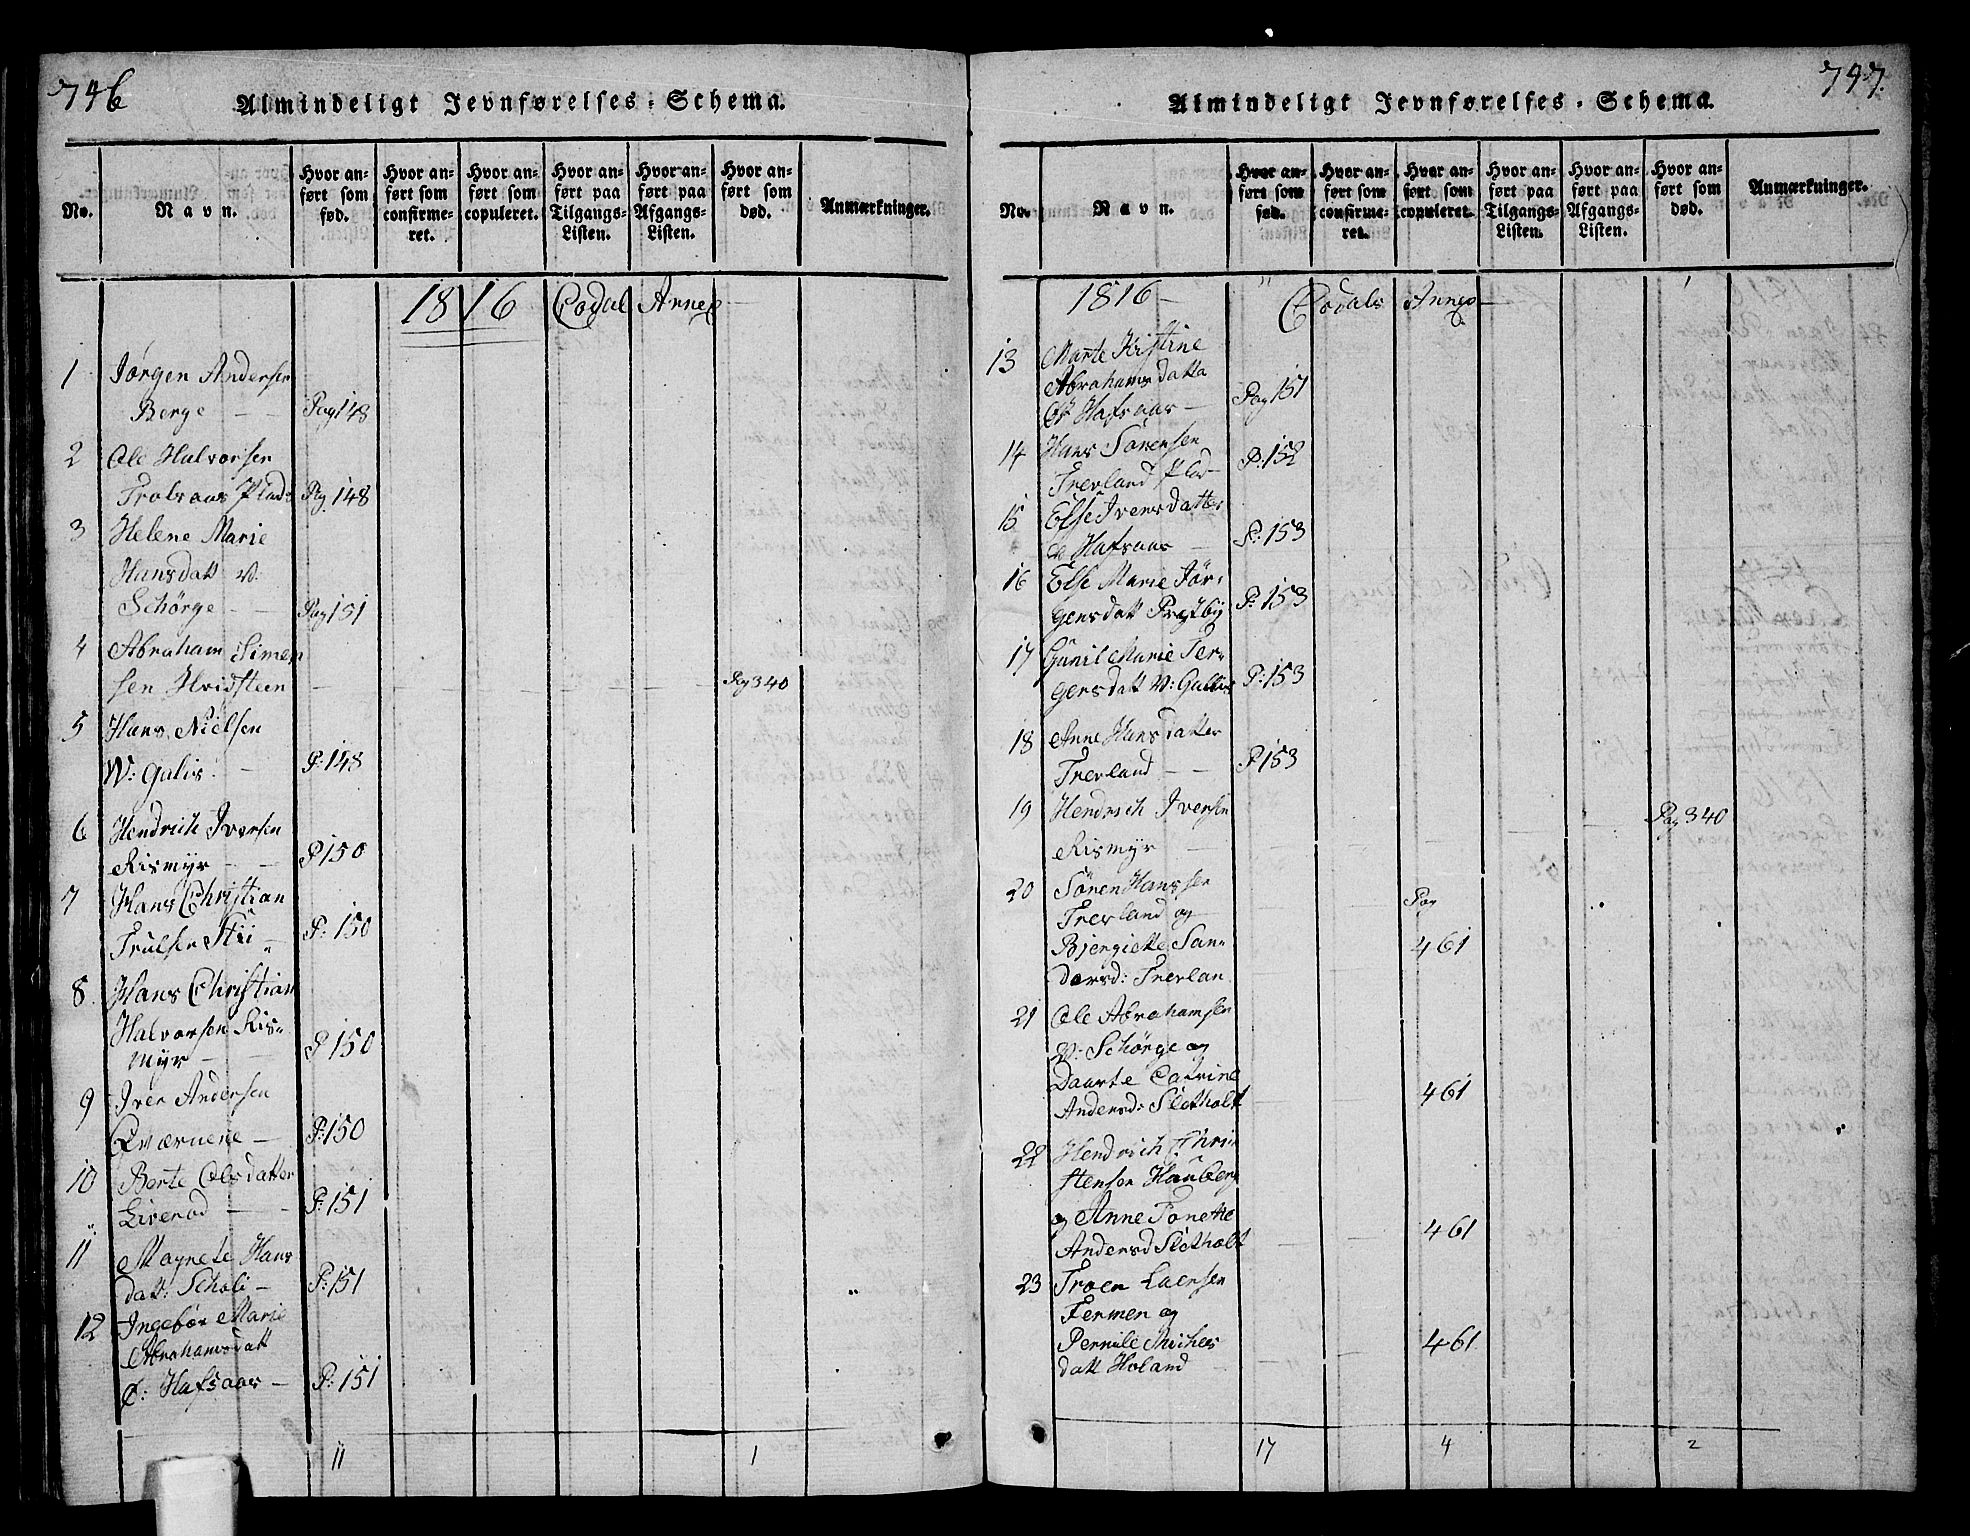 746
Almindeligt Jevnførelses-Schema.
No.
Navn.
Hvor an-
ført som
fød.
Hvor an-
ført som
confirme-
ret.
Hvor an-
ført som
copuleret.
Hvor an-
ført paa
Tilgangs-
Listen.
Hvor an-
ført paa
Afgangs-
Listen.
Hvor an-
ført som
død.
Anmærkninger.
1816 Eodal Annex
1 Jørgen Andersen
Berge — — Pag 148
2 Ole Halvorsen
Trolsaas Plads Pag 148
3 Helene Marie
Hansdatt V.
Schörge — — Pag 151
4 Abraham Simen
sen Hvidsteen — — — — — Pag 340
5 Hans Nielsen
W: Galis: — P: 148
6 Hendrich Iversen
Rismyr — — P 150
7 Hans Christian
Trulsen Stü — P: 150
8 Hans Christian
Halvorsen Ris-
myr — — P 150
9 Iver Andersen
Qværnene — P: 150
10 Berte Olsdatter
Liverød — — P: 151
11 Magnete Hans
datt: Scholi — P: 151
12 Ingebor Marie
Abrahamsdatt
Ø: Hafsaas — P: 151
11 1
747.
Almindeligt Jevnførelses-Schema.
No.
Navn.
Hvor an-
ført som
fød.
Hvor an-
ført som
confirme-
ret.
Hvor an-
ført som
copuleret.
Hvor an-
ført paa
Tilgangs-
Listen.
Hvor an-
ført paa
Afgangs-
Listen.
Hvor an-
ført som
død.
Anmærkninger.
1816 — Eodals Annex —
13 Marte Kistine
Abrahamsdatta
Hafsaas — Pag 151
14 Hans Sørensen
Trevland Plad— P: 152
15 Else Iversdatter
Hafsaas — P: 153
16 Else Marie Jør-
gensdatt Prestby P: 153
17 Gunil Marie Ter-
gensdatt W: Gallis P: 153
18 Anne Hansdatter
Trevland — — P 153
19 Hendrich Iversen Pag 340
Rismyr —
20 Sören Hanssen
Trevland og Pag
Bjergitte San- 461
dersd: Trevlan
21 Ole Abrahamsen
V: Schörge og
Daarte Catrine
Andersd: Sletholt 461
22 Hendrich Chri
stensen Hauberg
og Anne Tonette
Andersd Sletholt 461
23 Troen Laersen
Fermen og
Pernile Michels 461
datt Holand
17 4 2